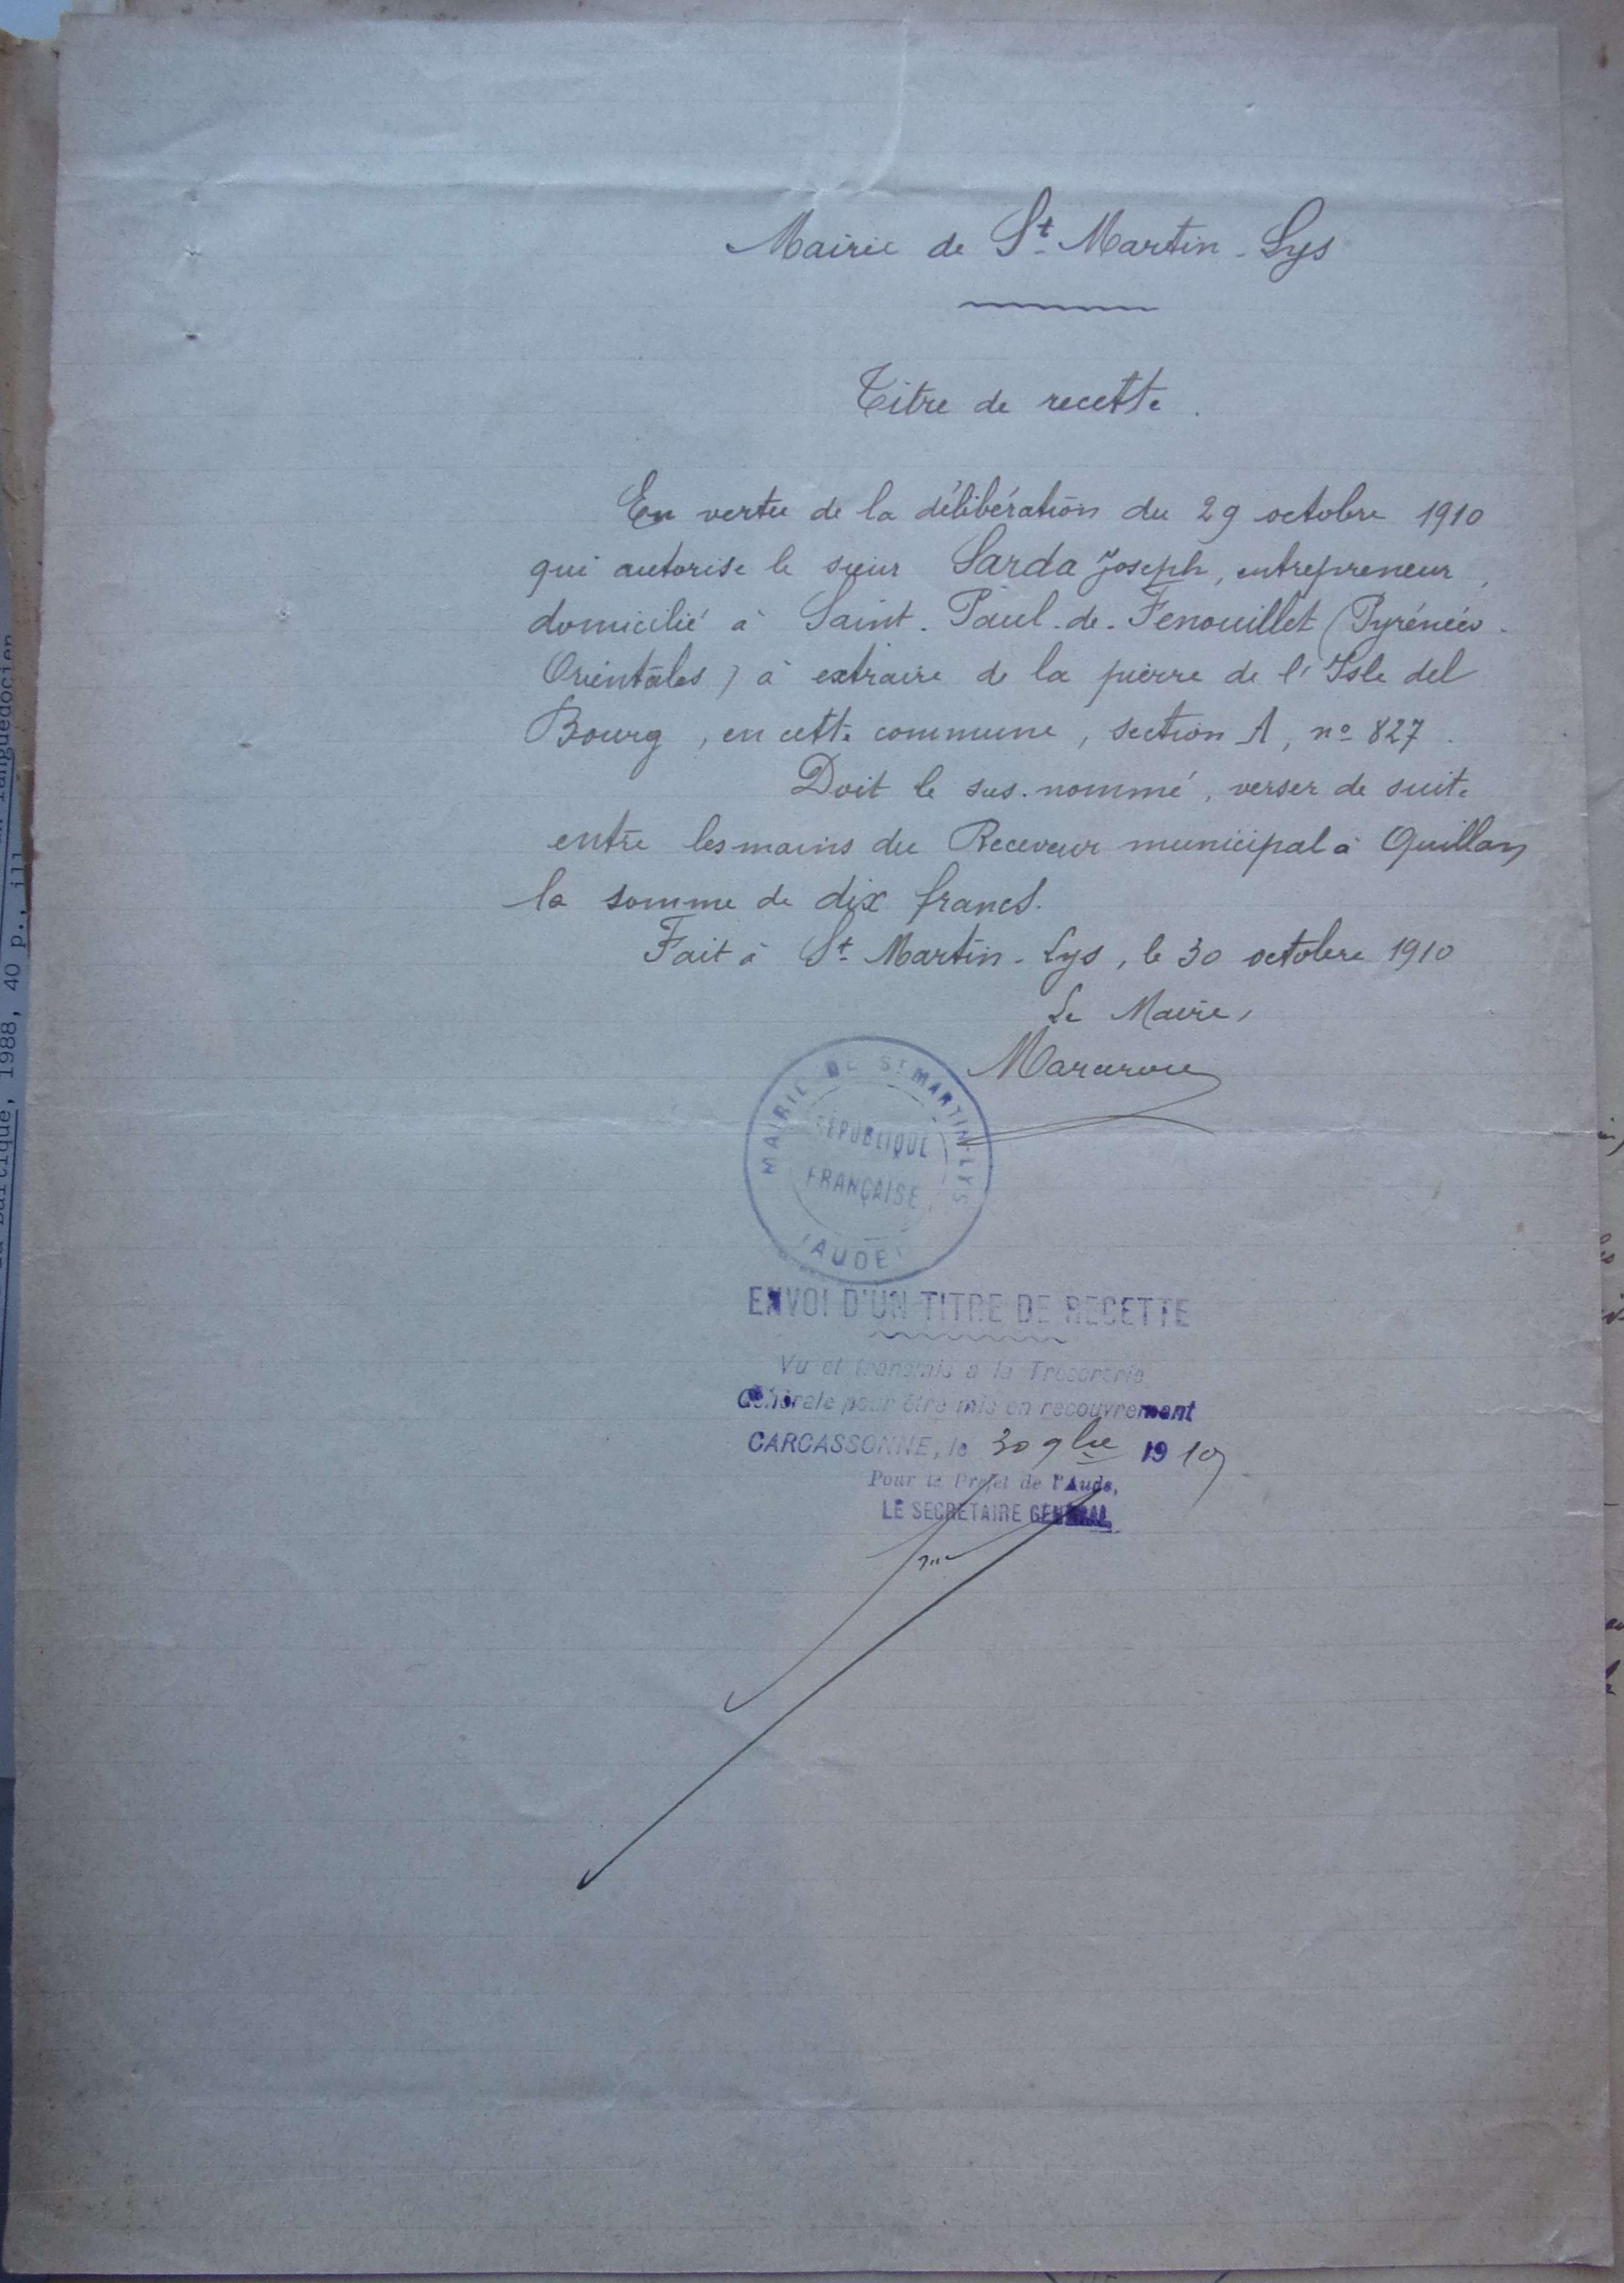 Mairie de St Martin-Lys
Titre de recette.
En vertu de la délibération du 29 octobre 1910
qui autorise le sieur Sarda Joseph, entrepreneur,
domicilié à Saint-Paul-de-Fenouillet (Pyrénées-
Orientales) à extraire de la pierre de l'Isle del
Bourg, en cette commune, section A, no 827.
Doit le sus-nommé, verser de suite
entre les mains du Receveur municipal à Quillan
la somme de dix francs.
Fait à St Martin-Lys, le 30 octobre 1910
Le Maire,
MAIRIE DE ST MARTIN-LYS
RÉPUBLIQUE
FRANÇAISE
(AUDE)
ENVOI D'UN TITRE DE RECETTE
Vu et transmis à la Trésorerie
Générale pour être mis en recouvrement
CARCASSONNE, le 30 9bre 1910
Pour le Préfet de l'Aude,
LE SECRÉTAIRE GÉNÉRAL
languedocien
la Baltique, 1988, 40 p., ill